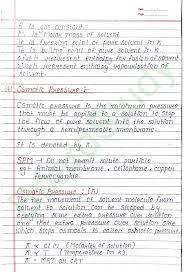 R is gas constant
M₁ is Molar mass of solvent
Tf is freezing point of pure solvent in K.
Tb is boiling point of pure solvent in K.
represent enthalpy for fusion of solvent
represent enthalpy vapourisation of
solvent.
Osmotic Pressure :-
Osmotic pressure is the minimum pressure
that must be applied to a solution to stop
the flow of solvent into the solution
through a semipermeable membrane.
It is denoted by
SPM → Do not permit solute particle
eg:- Animal membrane, cellophane, copper
ferrocyanide
Osmotic Pressure : (π)
The net movement of solvent molecule from
solvent to solution can be stopped by
applying some extra pressure over solution
and that extra pressure over solution side
which stops osmosis is called osmotic press.
π ∝ C (M) (Molarity of solution)
π ∝ T (Temperature in K)
π = MRT or CRT